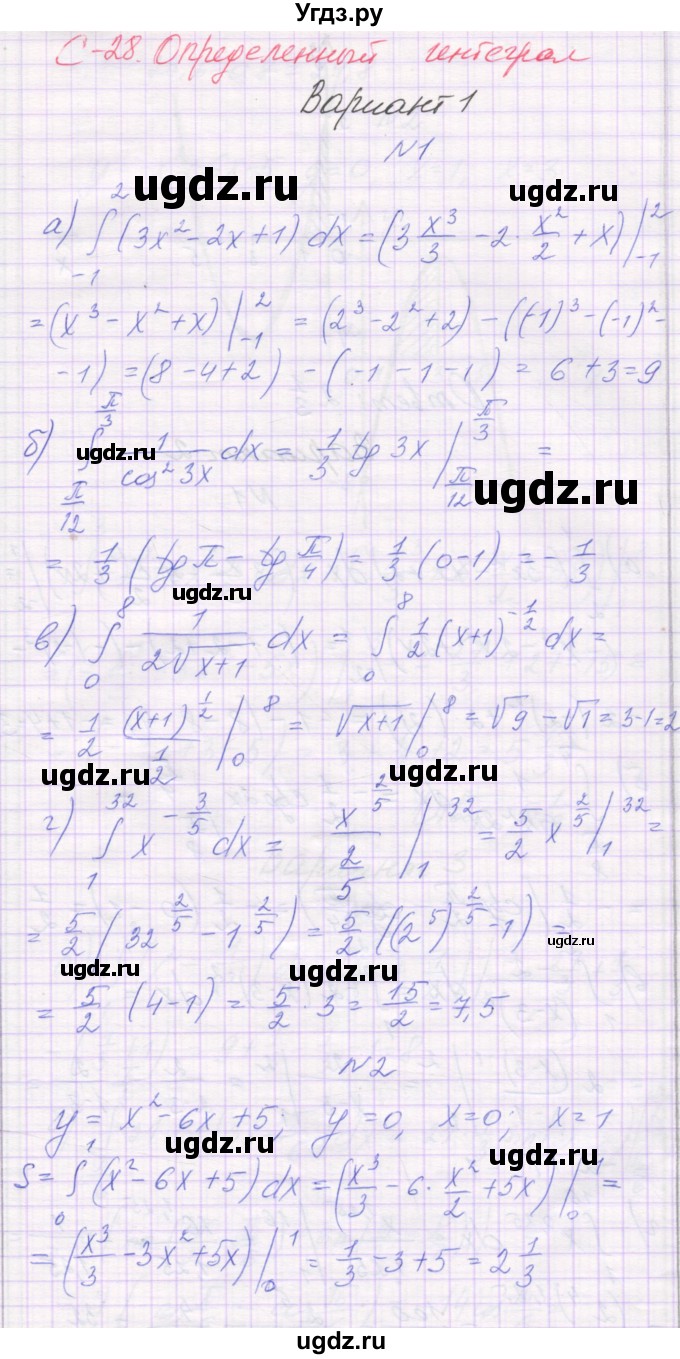 Угдз.ру
С-28. Определенный интеграл
Вариант 1
N1
ugdz.ru ugdz.ru
а) ∫₋₁² (3x² - 2x + 1) dx = (3 x³/3 - 2 · x²/2 + x) |₋₁²
= (x³ - x² + x) |₋₁² = (2³ - 2² + 2) - ((-1)³ - (-1)² -
- 1) = (8 - 4 + 2) - (-1 - 1 - 1) = 6 + 3 = 9
б) ∫_{π/12}^{π/3} 1/cos² 3x dx = 1/3 tg 3x |_{π/12}^{π/3} =
ugdz.ru ugdz.ru ugdz.ru
= 1/3 (tg π - tg π/4) = 1/3 (0 - 1) = - 1/3
ugdz.ru
в) ∫₀⁸ 1/(2√(x+1)) dx = ∫₀⁸ 1/2 (x+1)^{-1/2} dx =
= 1/2 (x+1)^{1/2}/(1/2) |₀⁸ = √(x+1) |₀⁸ = √9 - √1 = 3-1=2
ugdz.ru ugdz.ru
г) ∫₁³² x^{-3/5} dx = x^{2/5}/(2/5) |₁³² = 5/2 x^{2/5} |₁³² =
= 5/2 (32^{2/5} - 1^{2/5}) = 5/2 ((2⁵)^{2/5} - 1) =
ugdz.ru ugdz.ru ugdz.ru
= 5/2 (4-1) = 5/2 · 3 = 15/2 = 7,5
N2
y = x² - 6x + 5; y = 0, x = 0; x = 1
ugdz.ru ugdz.ru
S = ∫₀¹ (x² - 6x + 5) dx = (x³/3 - 6 · x²/2 + 5x) |₀¹ =
= (x³/3 - 3x² + 5x) |₀¹ = 1/3 - 3 + 5 = 2 1/3
ugdz.ru ugdz.ru
ugdz.ru